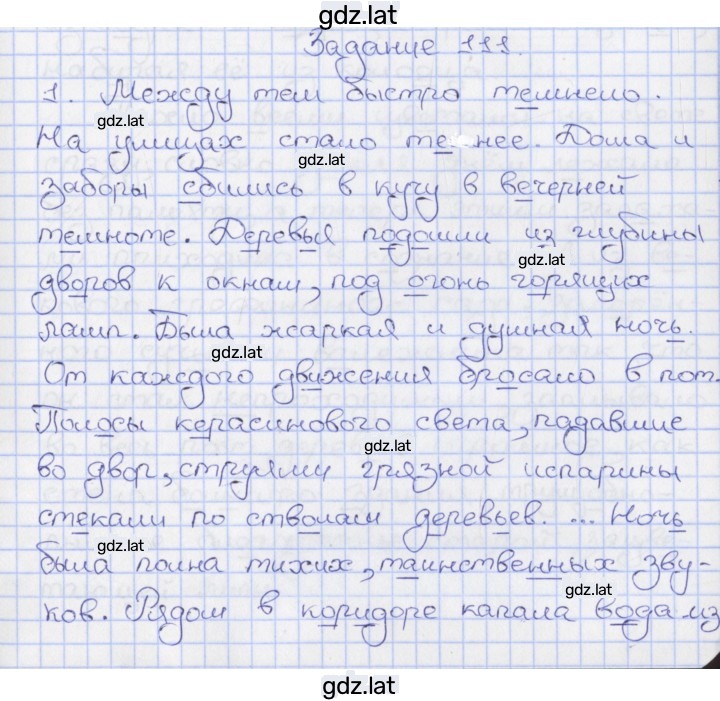 gdz.lat
Задание 111.
1. Между тем быстро темнело.
gdz.lat
На улицах стало те нее. Дома и
gdz.lat
заборы сбились в кучу в вечерней
темноте. Деревья подошли из глубины
gdz.lat
дворов к окнам, под огонь горящих
ламп. Была жаркая и душная ночь.
gdz.lat
От каждого движения бросало в пот.
Полосы керасинового света, падавшие
gdz.lat
во двор, струями грязной испарины
стекали по стволам деревьев. ... Ночь
gdz.lat
была полна тихих, таинственных зву-
gdz.lat
ков. Рядом в коридоре капала вода из
gdz.lat